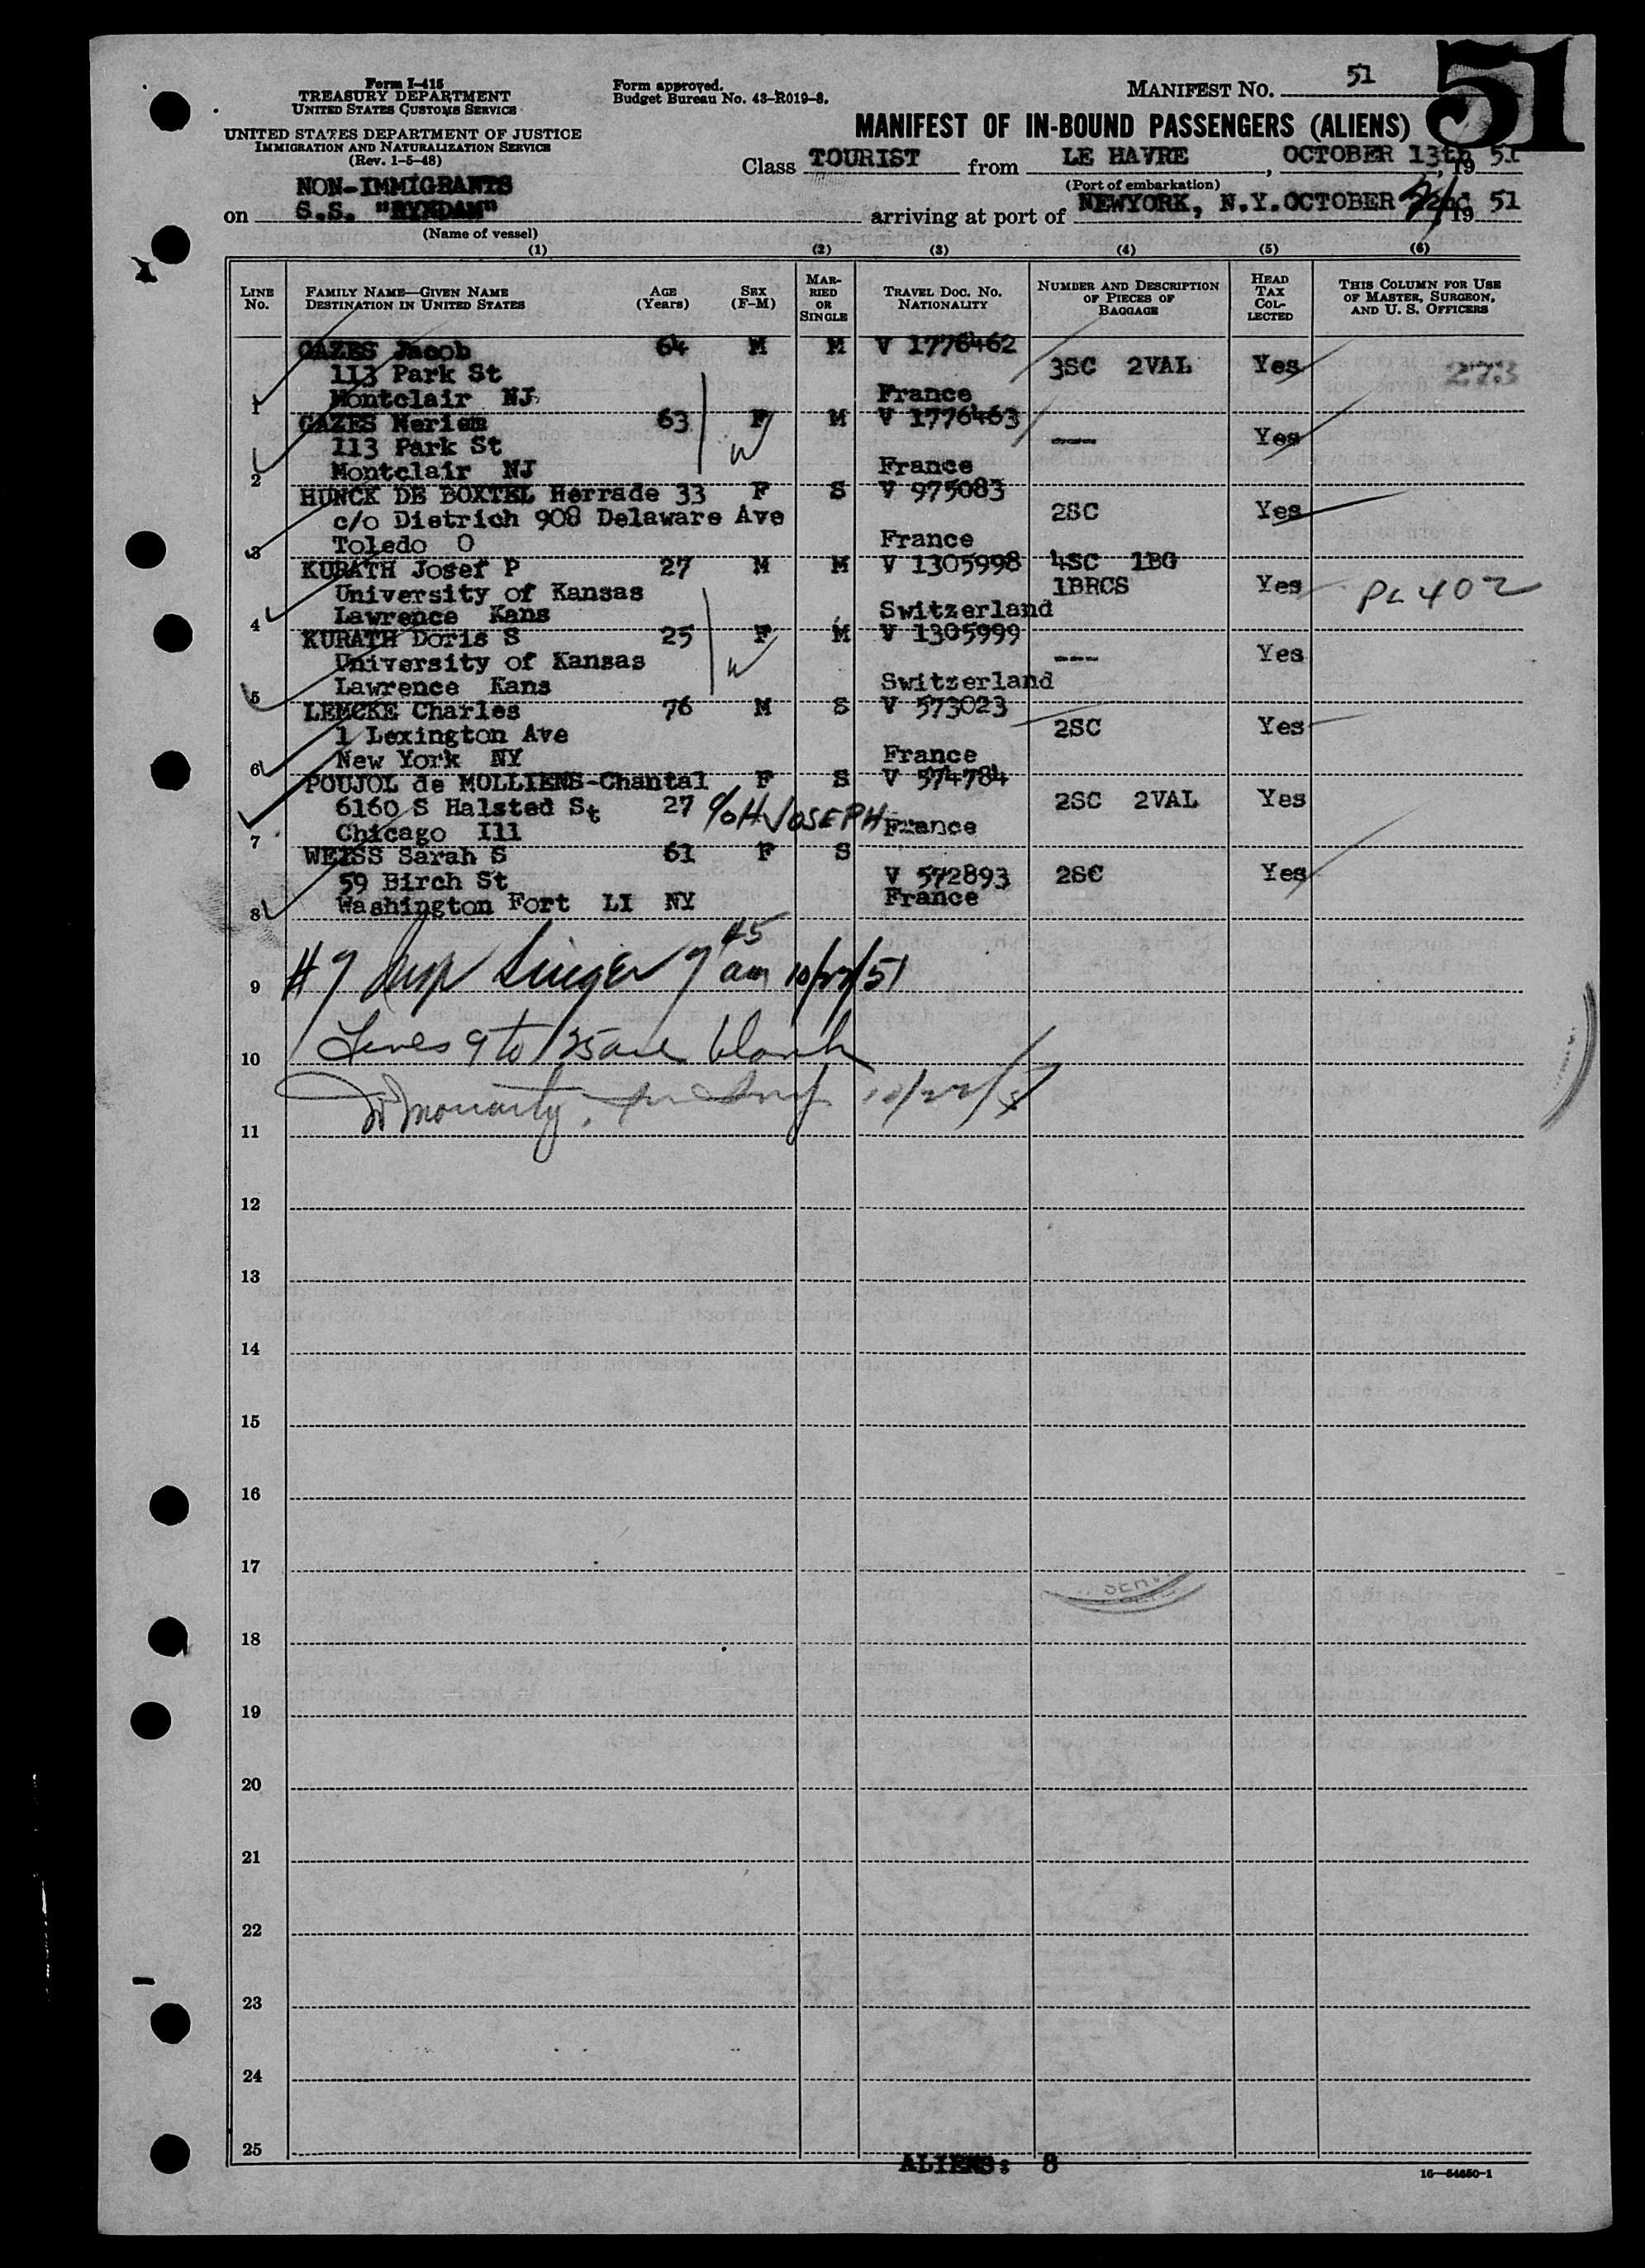 Form I-415
TREASURY DEPARTMENT
UNITED STATES CUSTOMS SERVICE
UNITED STATES DEPARTMENT OF JUSTICE
IMMIGRATION AND NATURALIZATION SERVICE
(Rev. 1-5-48)
Form approved.
Budget Bureau No. 43-R019-8.
MANIFEST NO. 51
51
MANIFEST OF IN-BOUND PASSENGERS (ALIENS)
Class TOURIST from LE HAVRE, OCTOBER 13th, 19 51
(Port of embarkation)
NON-IMMIGRANTS
on S.S. "RYNDAM" arriving at port of NEWYORK, N.Y. OCTOBER 19 51
(Name of vessel)
(1) (2) (3) (4) (5) (6)
LINE NO. FAMILY NAME—GIVEN NAME DESTINATION IN UNITED STATES AGE (Years) SEX (F-M) MARRIED OR SINGLE TRAVEL DOC. NO. NATIONALITY NUMBER AND DESCRIPTION OF PIECES OF BAGGAGE HEAD TAX COLLECTED THIS COLUMN FOR USE OF MASTER, SURGEON, AND U. S. OFFICERS
GAZES Jacob 64 M M V 1776462
113 Park St 3SC 2VAL Yes 273
1 Montclair NJ France
GAZES Meriem 63 F M V 1776463
113 Park St W --- Yes
2 Montclair NJ France
HUNCK DE BOXTEL Herrade 33 F S V 975083
c/o Dietrich 908 Delaware Ave 2SC Yes
3 Toledo O France
KURATH Josef P 27 M M V 1305998 4SC 1BG
University of Kansas 1BRCS Yes PL 402
4 Lawrence Kans Switzerland
KURATH Doris S 25 F M V 1305999
University of Kansas W --- Yes
5 Lawrence Kans Switzerland
LEMCKE Charles 76 M S V 573023
1 Lexington Ave 2SC Yes
6 New York NY France
POUJOL de MOLLIENS-Chantal F S V 574784
6160 S Halsted St 27 c/o H JOSEPH 2SC 2VAL Yes
7 Chicago Ill France
WEISS Sarah S 61 F S
59 Birch St V 572893 2SC Yes
8 Washington Fort LI NY France
9 #7 Singer 9 45 am 10/22/51
10 Lines 9 to 25 are blank
11 Moriarty 10/22/51
12
13
14
15
16
17
18
19
20
21
22
23
24
25
ALIENS: 8
16—54650-1